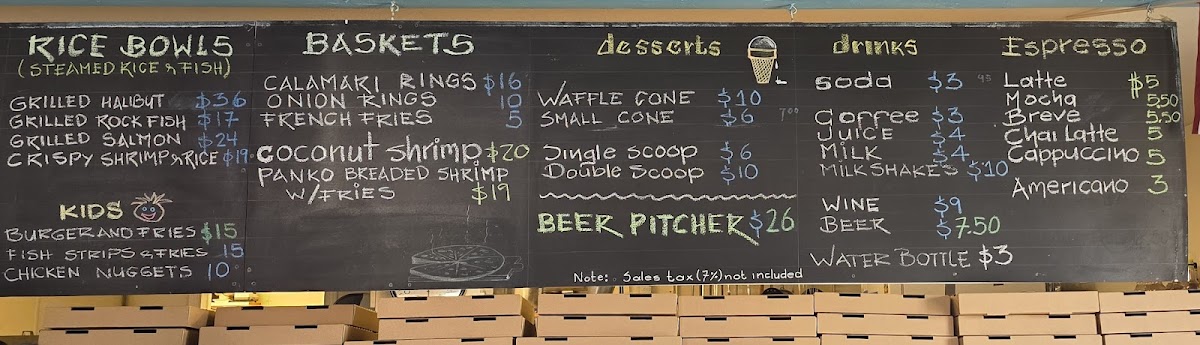 RICE BOWLS
(STEAMED RICE & FISH)
GRILLED HALIBUT $36
GRILLED ROCK FISH $17
GRILLED SALMON $24
CRISPY SHRIMP & RICE $19
KIDS
BURGER AND FRIES $15
FISH STRIPS & FRIES 15
CHICKEN NUGGETS 10
BASKETS
CALAMARI RINGS $16
ONION RINGS 10
FRENCH FRIES 5
COCONUT SHRIMP $20
PANKO BREADED SHRIMP
W/FRIES $19
desserts
WAFFLE CONE $10
SMALL CONE $6
Single Scoop $6
Double Scoop $10
BEER PITCHER $26
Note: Sales tax (7%) not included
drinks
soda $3
Coffee $3
JUICE $4
MILK $4
MILKSHAKES $10
WINE $9
BEER $7.50
WATER BOTTLE $3
Espresso
Latte $5
Mocha 5.50
Breve 5.50
Chai Latte 5
Cappuccino 5
Americano 3